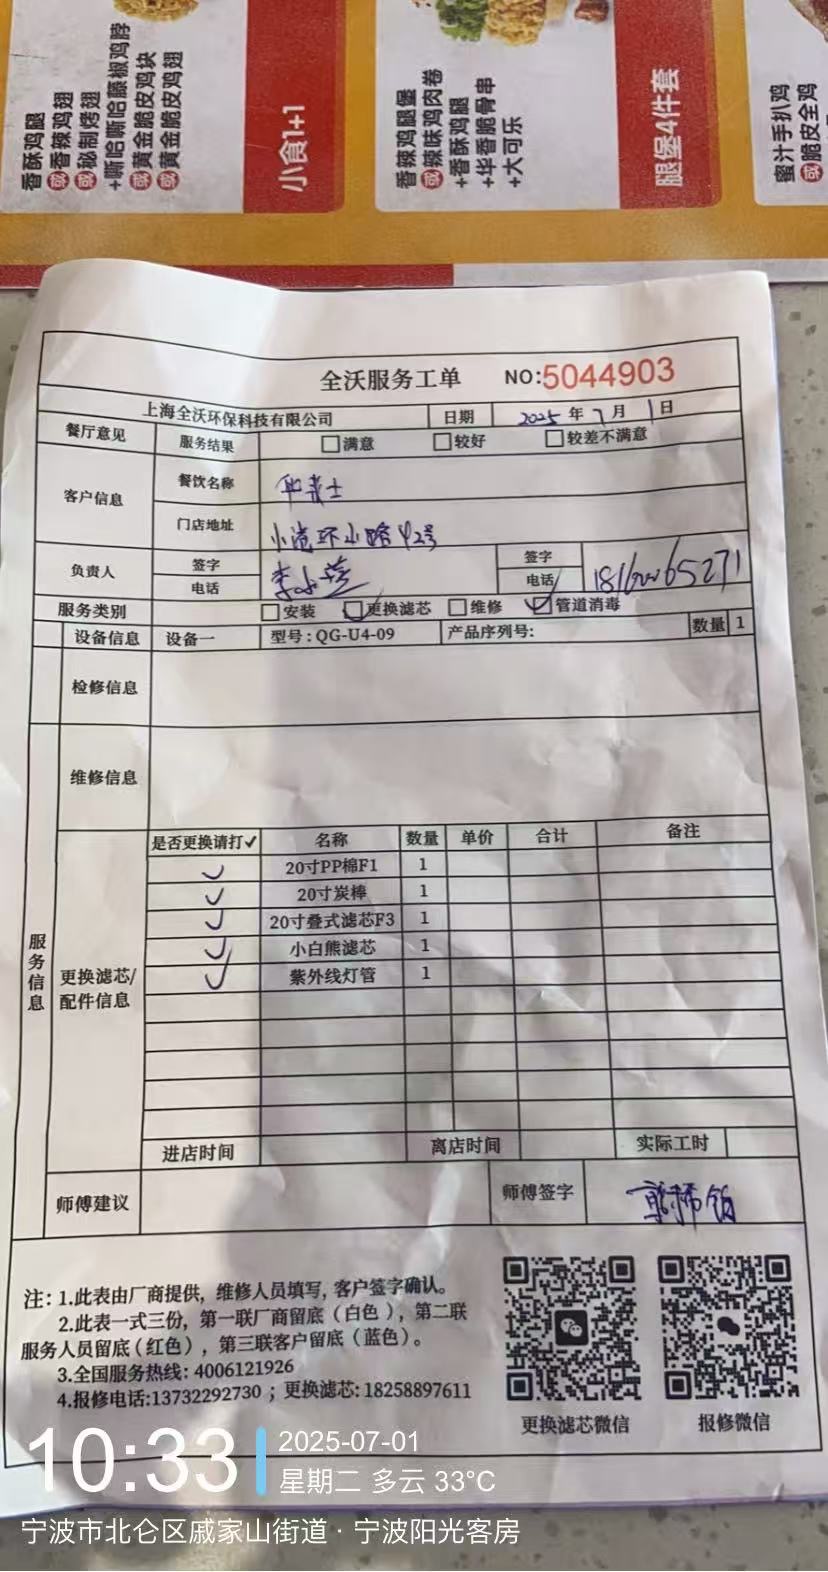 香酥鸡腿
或香辣鸡翅
或秘制烤翅
+嘶哈嘶哈藤椒鸡脖
或黄金脆皮鸡块
或黄金脆皮鸡翅
小食1+1
香辣鸡腿堡
或辣味鸡肉卷
+香酥鸡腿
+华香脆骨串
+大可乐
腿堡4件套
蜜汁手扒鸡
或脆皮全鸡
全沃服务工单 NO:5044903
上海全沃环保科技有限公司 日期 2025 年 7 月 1 日
餐厅意见 服务结果 满意 较好 较差不满意
客户信息 餐饮名称 华莱士
门店地址 小港环小路42号
负责人 签字 签字
电话 电话
服务类别 安装 更换滤芯 维修 管道消毒
设备信息 设备一 型号:QG-U4-09 产品序列号: 数量 1
检修信息
维修信息
服务信息
更换滤芯/配件信息
是否更换请打✓ 名称 数量 单价 合计 备注
✓ 20寸PP棉F1 1
✓ 20寸炭棒 1
✓ 20寸叠式滤芯F3 1
✓ 小白熊滤芯 1
✓ 紫外线灯管 1
进店时间 离店时间 实际工时
师傅建议 师傅签字
注: 1.此表由厂商提供, 维修人员填写, 客户签字确认。
2.此表一式三份, 第一联厂商留底 (白色), 第二联
服务人员留底 (红色), 第三联客户留底 (蓝色)。
3.全国服务热线: 4006121926
4.报修电话:13732292730 ; 更换滤芯: 18258897611
更换滤芯微信 报修微信
10:33
2025-07-01
星期二 多云 33°C
宁波市北仑区戚家山街道 · 宁波阳光客房